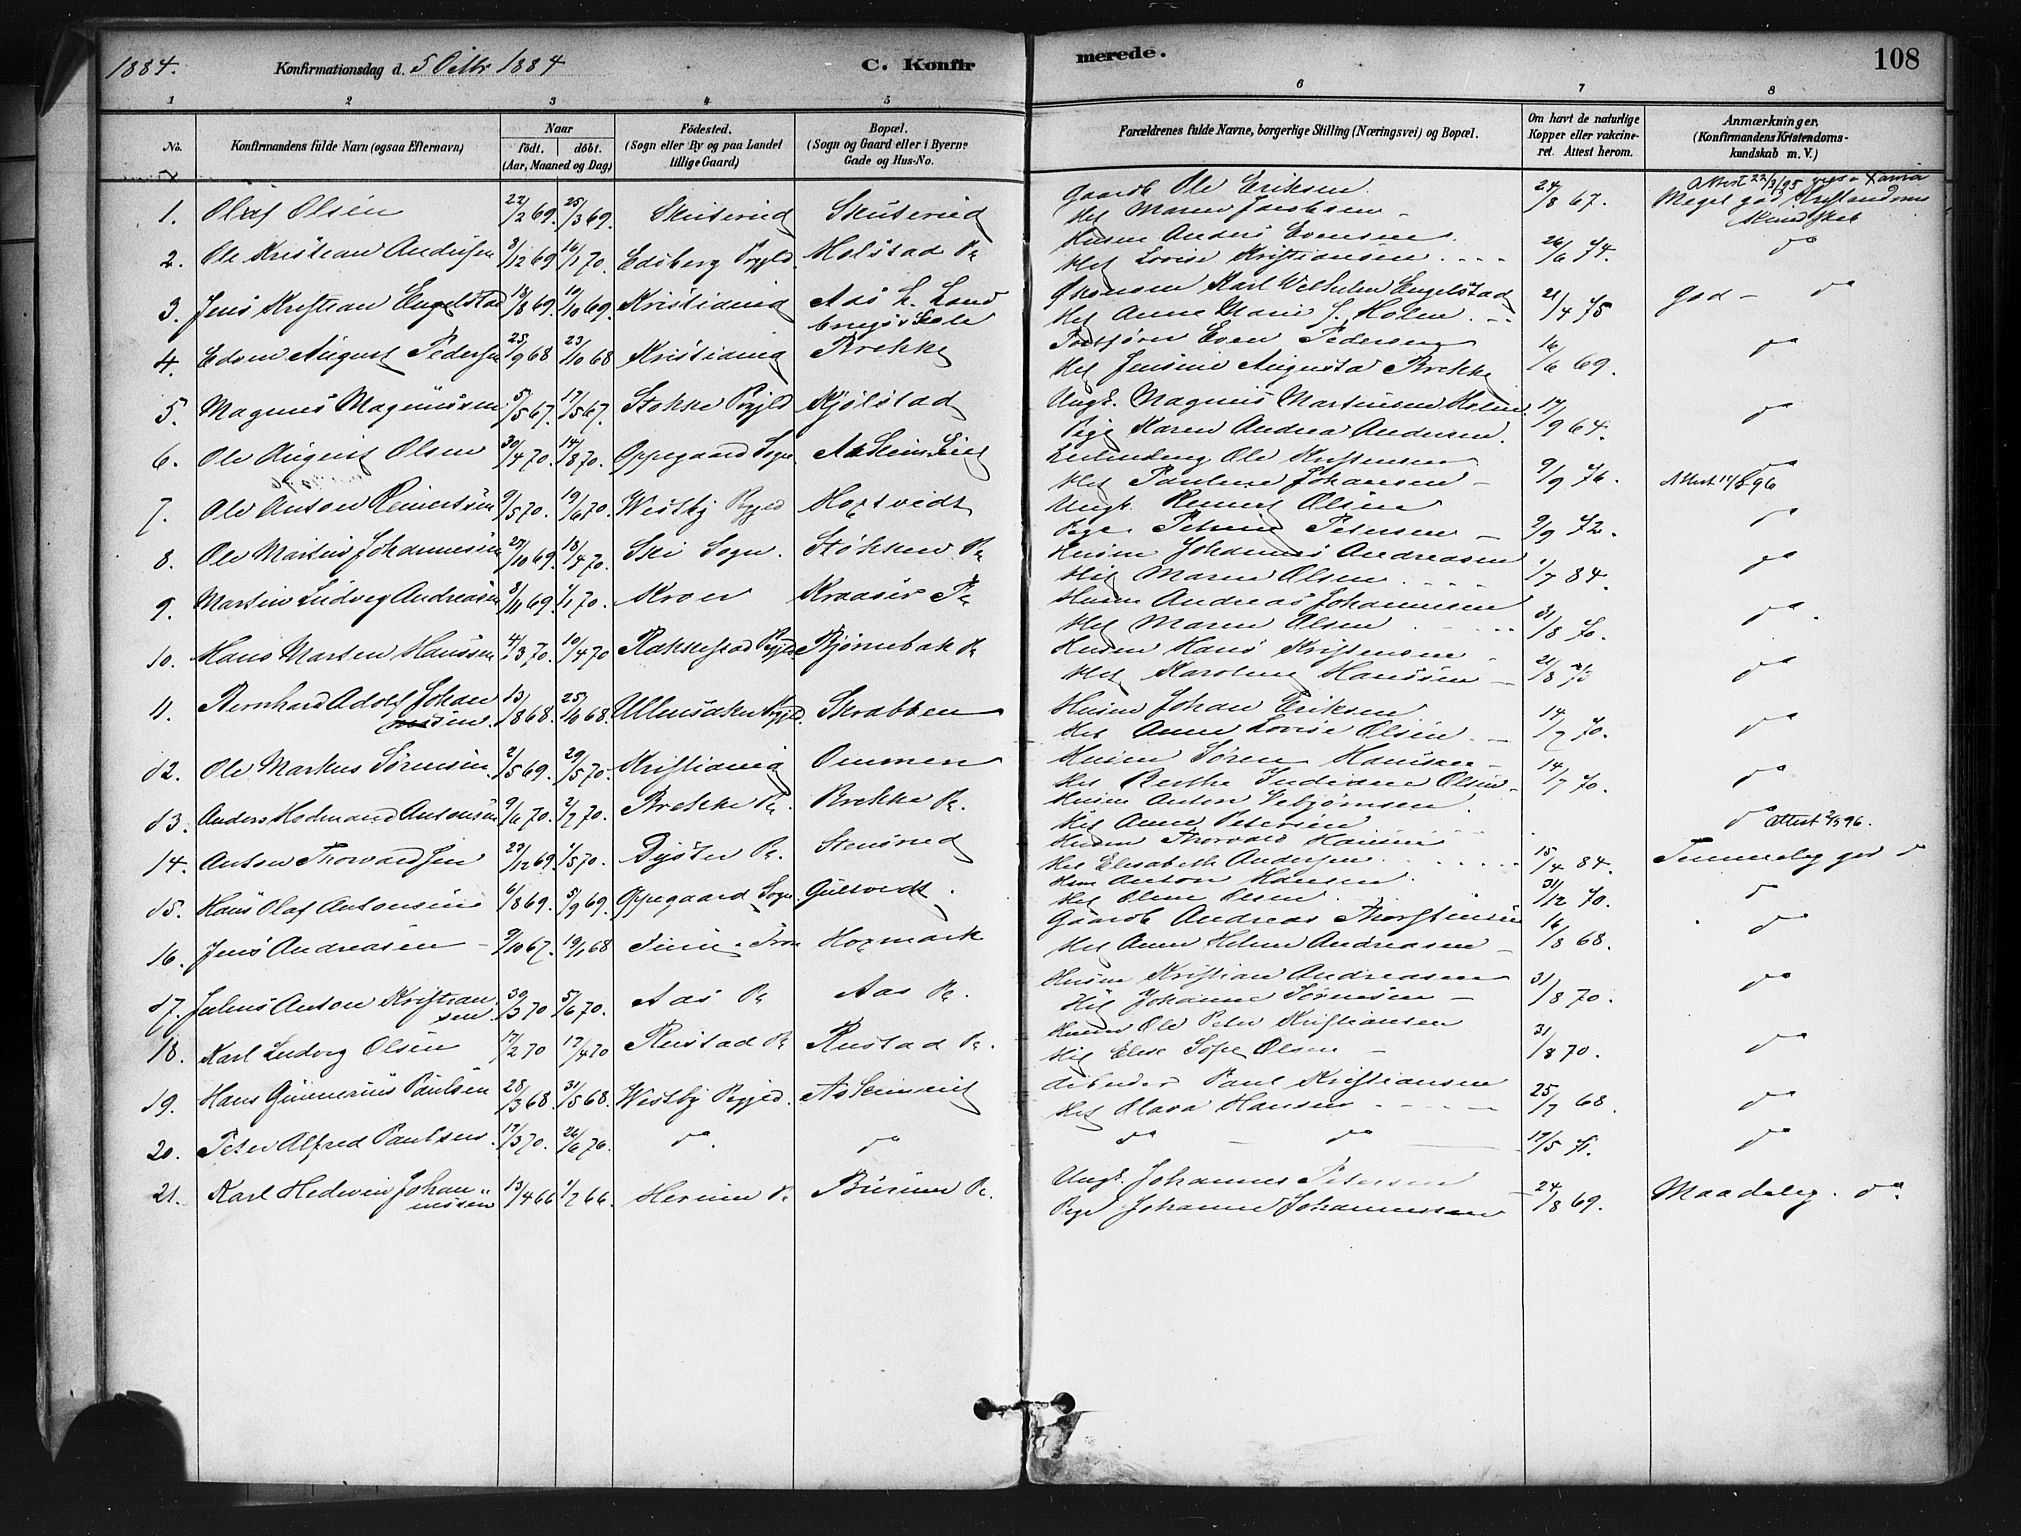 1884. Konfirmationsdag d. 5 Oktbr 1884 C. Konfirmerede. 108
1 2 3 4 5 6 7 8
No. Konfirmandens fulde Navn (ogsaa Efternavn) Naar födt. döbt. (Aar, Maaned og Dag) Födested. (Sogn eller By og paa Landet tillige Gaard) Bopæl. (Sogn og Gaard eller i Byerne Gade og Hus-No. Forældrenes fulde Navne, borgerlige Stilling (Næringsvei) og Bopæl. Om havt de naturlige Kopper eller vakcineret. Attest herom. Anmærkninger. (Konfirmandens Kristendomskundskab m. V.)
1. Olaf Olsen 22/2 69. 25/3 69. Skuterud Skuterud Gaardb Ole Eriksen. 24/8 67. Attest 22/3/95
Hst Maren Jacobsen Meget god Kristendoms
kundskab
2. Ole Kristian Andersen 3/12 69 16/1 70. Edsberg Pgjld. Holstad Pe Husm Anders Evensen 26/6 74. do
Hst Lovise Kristiansen
3. Jens Kristian Engelstad 18/8 69. 10/10 69. Kristiania Aas h. Land Økonom Karl Wilhelm Engelstad 21/4 75 God do
brugsskole Hst Anne Marie J. Holm
4. Edvin August Pedersen 25/9 68 23/10 68 Kristiania Brekke Even Pedersen 16/6 69. do
Hst Jensine Augusta Brekke
5. Magnus Magnussen 5/5 67. 17/5 67. Stokke Pgjld Kjølstad Ungk. Magnus Martinsen Holm 17/9 64. do
Pige Karen Andrea Andersen.
6. Ole August Olsen 30/4 70. 14/8 70. Oppegaard Sogn. Ole Kristensen 9/9 76. do
Hst Pauline Johansen Attest 96
7. Ole Anton Reinertsen 9/5 70. 19/6 70. Westby Pgjd Hogstvedt Ungk. Reinert Olsen 9/9 72. do
Pige Petrine Petersen
8. Ole Martin Johannesen 27/10 69. 18/4 70. Ski Sogn. Støkken Pe Husm Johannes Andreasen 1/7 84. do
Hst Maren Olsen
9. Martin Ludvig Andreasen 3/11 69. 1/1 70. Kroer Kroer Pe Husm Andreas Johannesen 31/8 70. do
Hst Maren Olsen
10. Hans Martin Hanssen 4/3 70. 10/4 70 Rakkestad Pgjld Bjørnebæk Pe Husm Hans Kristensen 21/8 73 do
Hst Karoline Hanssen
11. Bernhard Adolf Johan 13/8 68. 25/10 68. Ullensaker Pgjld. Skrabben Husm Johan Eriksen 14/7 70. do
sen Hst Anne Lovise Olsen
12. Ole Markus Sørensen. 2/5 69. 29/5 70. Kristiania Ommen Husm Søren Hansen 14/7 70. do
Hst Berthe Indiane Olsen
13. Anders Hedmand Antonsen 9/6 70. 2/7 70. Brekke Pe. Brekke Pe. Husm Anton do Attest 2/3 96.
Hst Anne Petersen
14. Anton Thorvaldsen 27/12 69. 1/5 70. Dyster Pe. Stensrud Husm Thorvald Hansen 15/4 84. Temmelig god do
Hst Elisabeth Andersen
15. Hans Olaf Antonsen 6/8 69. 5/9 69. Oppegaard Sogn. Gultvedt. Husm Anton Hansen 31/12 70. do
Hst Oline Olsen
16. Jens Andreasen 9/10 67. 19/1 68 Hogmark Gaardb Andreas Thorstensen 16/8 68. do
Hst Anne Helene Andreasen
17. Julius Anton Kristian 30/3 70 5/6 70. Aas Pe Aas Pe. Husm Kristian Andreasen 31/8 70. do
sen Hst Johanne Sørensen
18. Karl Ludvig Olsen 17/2 70 17/4 70 Rustad Pe Rustad Pe. Husm Ole Peter Kristiansen 31/8 70. do
Hst Elise Sofie Olsen
19. Hans Gunnerius Paulsen 28/3 68 31/5 68. Westby Pgjd. Arbeider Paul Kristiansen 25/7 68. do
Hst Olava Hansen
20. Peter Alfred Paulsen. 17/3 70. 26/6 70. do do do do 19/5 71. do
21. Karl Hedevin Johan 13/4 66 1/7 66. Herum Pe Burum Pe. Ungk. Johannes Petersen 24/8 69. Maadelig. do
nessen Pige Johanne Johannessen